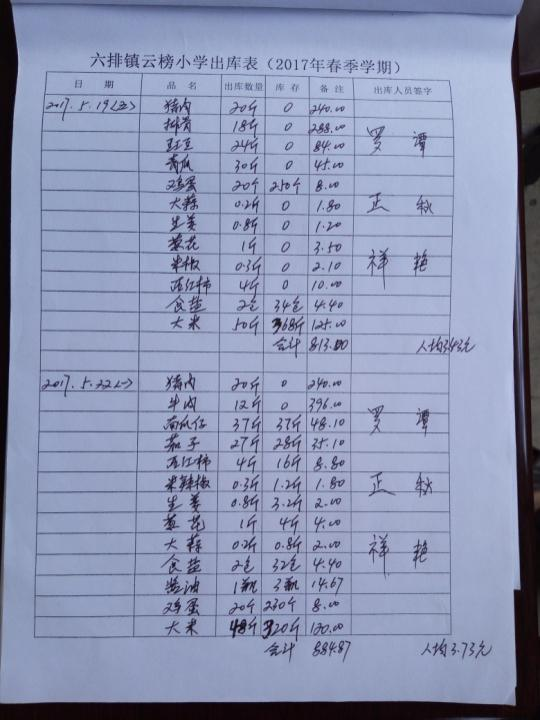 六排镇云榜小学出库表（2017年春季学期）
日 期 品 名 出库数量 库 存 备 注 出库人员签字
2017.5.19<五> 猪肉 20斤 0 240.00
排骨 18斤 0 288.00
豇豆 24斤 0 84.00
黄瓜 30斤 0 45.00
鸡蛋 20个 250个 8.00
大蒜 0.2斤 0 1.80
生姜 0.8斤 0 1.20
葱花 1斤 0 3.50
米椒 0.3斤 0 2.10
西红柿 4斤 0 10.00
食盐 2包 34包 4.40
大米 50斤 368斤 125.00
合计 813.00 人均3.43元
罗 谭
正 秋
祥 艳
2017.5.22<一> 猪肉 20斤 0 240.00
牛肉 12斤 0 396.00
南瓜仔 37斤 37斤 48.10
茄子 27斤 28斤 35.10
西红柿 4斤 16斤 8.80
米辣椒 0.3斤 1.2斤 1.80
生姜 0.8斤 3.2斤 2.00
葱花 1斤 4斤 4.00
大蒜 0.2斤 0.8斤 2.00
食盐 2包 32包 4.40
酱油 1瓶 3瓶 14.67
鸡蛋 20个 230个 8.00
大米 48斤 320斤 120.00
合计 884.87 人均3.73元
罗 谭
正 秋
祥 艳